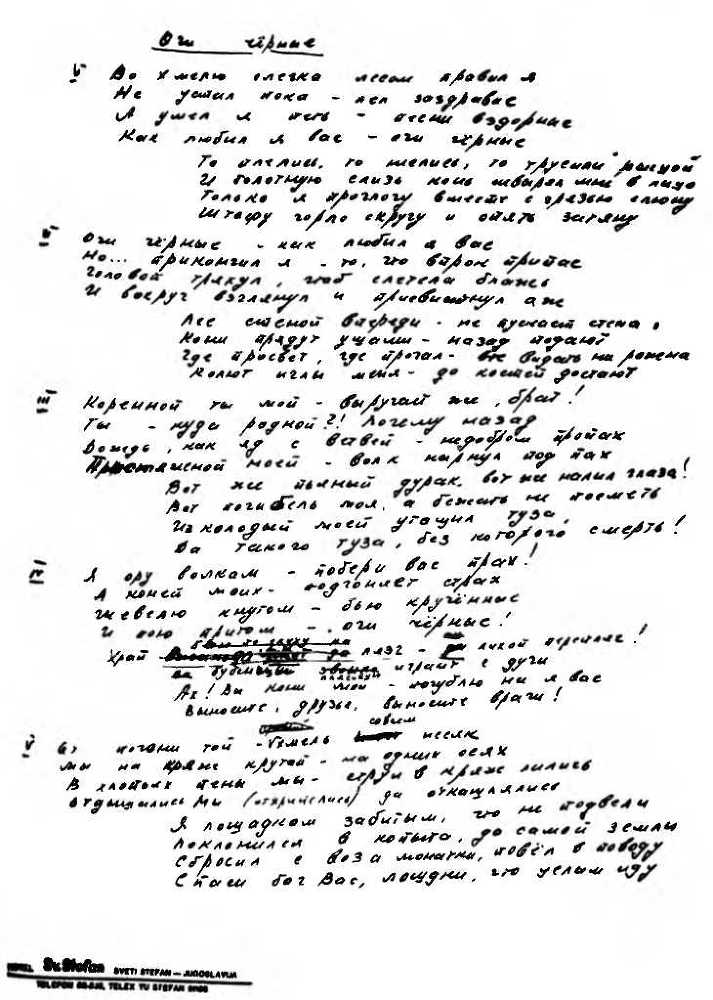 Очи чёрные
I Во хмелю слегка лесом правил я
Не устал пока - пел заздравие
А умел я петь - песни вздорные
Как любил я вас - очи чёрные
То плелись, то неслись, то трусили рысцой
И болотную слизь конь швырял мне в лицо
Только я проглочу вместе с грязью слюну
Штофу горло скручу и опять затяну
II Очи чёрные - как любил я вас
Но... прикончил я - то, что впрок припас
Головой тряхнул, чтоб слетела блажь
И вокруг взглянул и присвистнул аж
Лес стеной впереди - не пускает стена,
Кони прядут ушами - назад подают
Где просвет, где прогал - не видать ни рожна
Колют иглы меня - до костей достают
III Коренной ты мой - выручай же, брат!
Ты - куда родной?! Почему назад
Дождь, как яд с ветвей - недобром пропах
Пристяжной моей - волк нырнул под пах
Вот же пьяный дурак, вот же налил глаза!
Вот погибель моя, а бежать не посметь
Из колоды моей утащил туза
Да такого туза, без которого смерть!
IV Я ору волкам - побери вас прах!
А коней моих - подгоняет страх
Шевелю кнутом - бью кручённые
И пою притом - очи чёрные!
Храп да лязг - да лихой перепляс!
бубенцы играют с дуги
Ах! Вы кони мои - погублю ли я вас
Выносите, друзья, выносите враги!
совсем
V От погони той - хмель иссяк
Мы на кряж крутой - на одних осях
В хлопьях пены мы - струи в кряж лились
Отдышались мы (отхрипелись) да откашлялись
Я лошадкам забитым, что не подвели
Поклонился в копыта, до самой земли
Сбросил с воза монатки, повёл в поводу
Спаси бог вас, лошадки, что целым иду
HOTEL Sv. Stefan SVETI STEFAN — JUGOSLAVIJA
TELEFON TELEX YU STEFAN